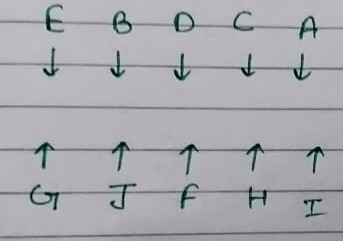 E B D C A
↓ ↓ ↓ ↓ ↓
↑ ↑ ↑ ↑ ↑
G J F H I